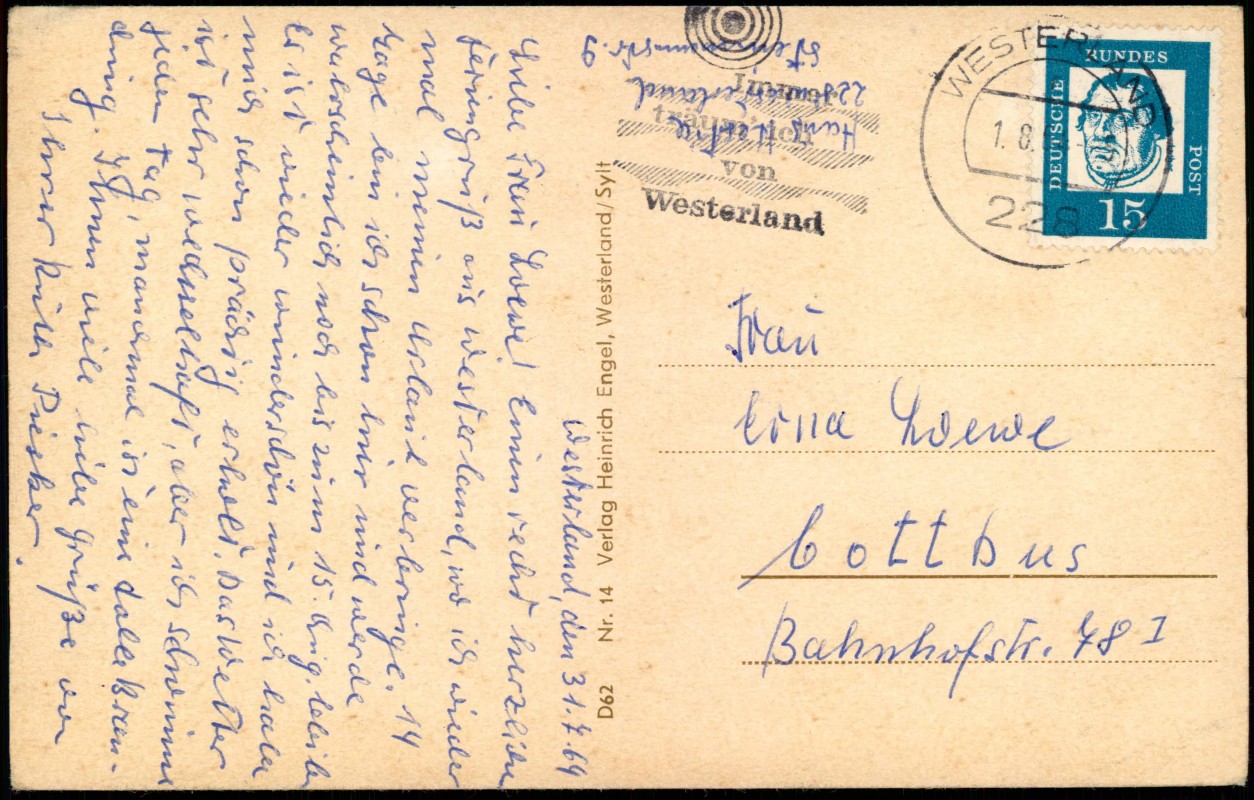 Westerland, den 31.7.64
Liebe Frau Loewe! Einen recht herzlichen
Feriengruß aus Westerland, wo ich wieder
mal meinen Urlaub verbringe. 14
Tage bin ich schon hier und werde
wahrscheinlich noch bis zum 15. Aug. bleiben
Es ist wieder wunderschön und ich habe
mich schon prächtig erholt. Das Wetter
ist sehr wechselhaft, aber ich schwimme
jeden Tag, manchmal ist eine tolle Bran-
dung. Ihnen viele liebe Grüße von
Ihrer Käthe
D62 Nr. 14 Verlag Heinrich Engel, Westerland/Sylt
228 Westerland
Steinmannstr. 9
Immer
träum' ich
von
Westerland
WESTERLAND
1. 8. 6
228
DEUTSCHE
BUNDES
POST
15
Frau
Erna Loewe
Cottbus
Bahnhofstr. 78 I